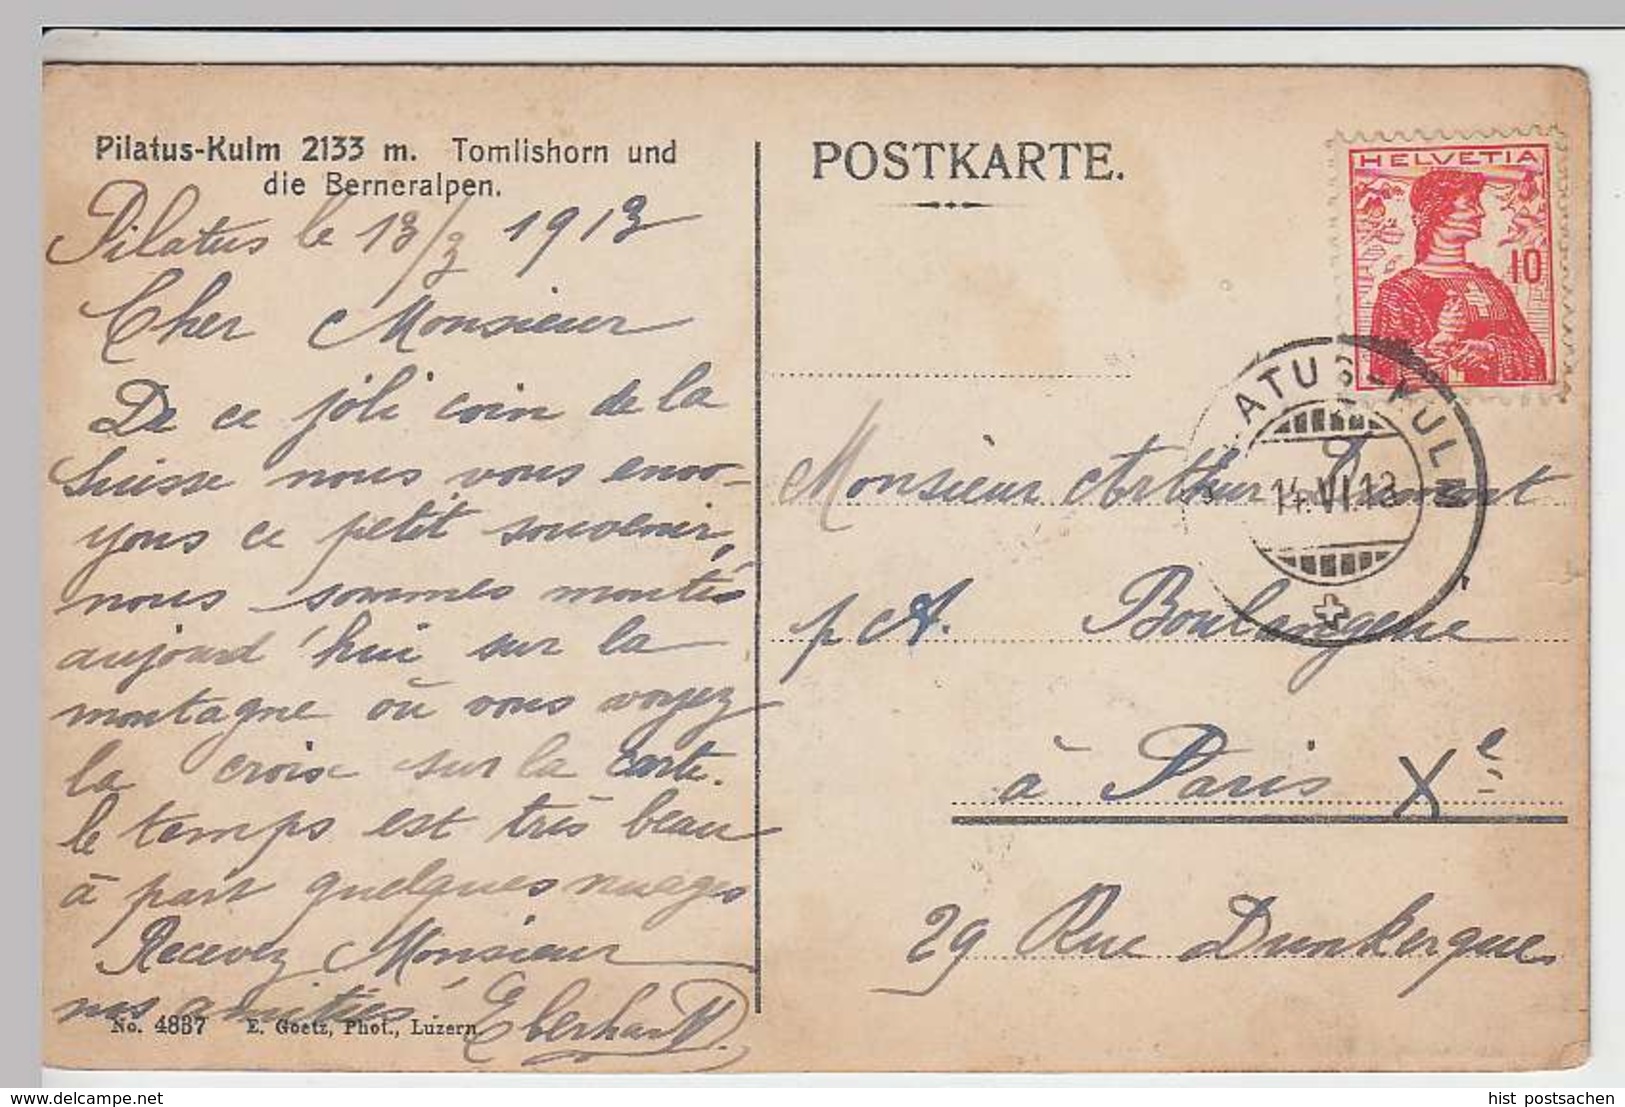 Pilatus-Kulm 2133 m. Tomlishorn und
die Berneralpen.
Pilatus le 13/3 1913
Cher Monsieur
De ce joli coin de la
Suisse nous vous envo-
yons ce petit souvenir,
nous sommes montés
aujourd'hui sur la
montagne où vous voyez
la croix sur la carte.
le temps est très beau
à part quelques nuages
Recevez Monsieur
nos amitiés Eberhardt
No. 4837 E. Goetz, Phot., Luzern.
POSTKARTE.
HELVETIA
10
ATUS-KULM
14.VI.13
Monsieur Arthur
p A. Boulangerie
à Paris Xe
29 Rue Dunkerque
delcampe.net
hist_postsachen